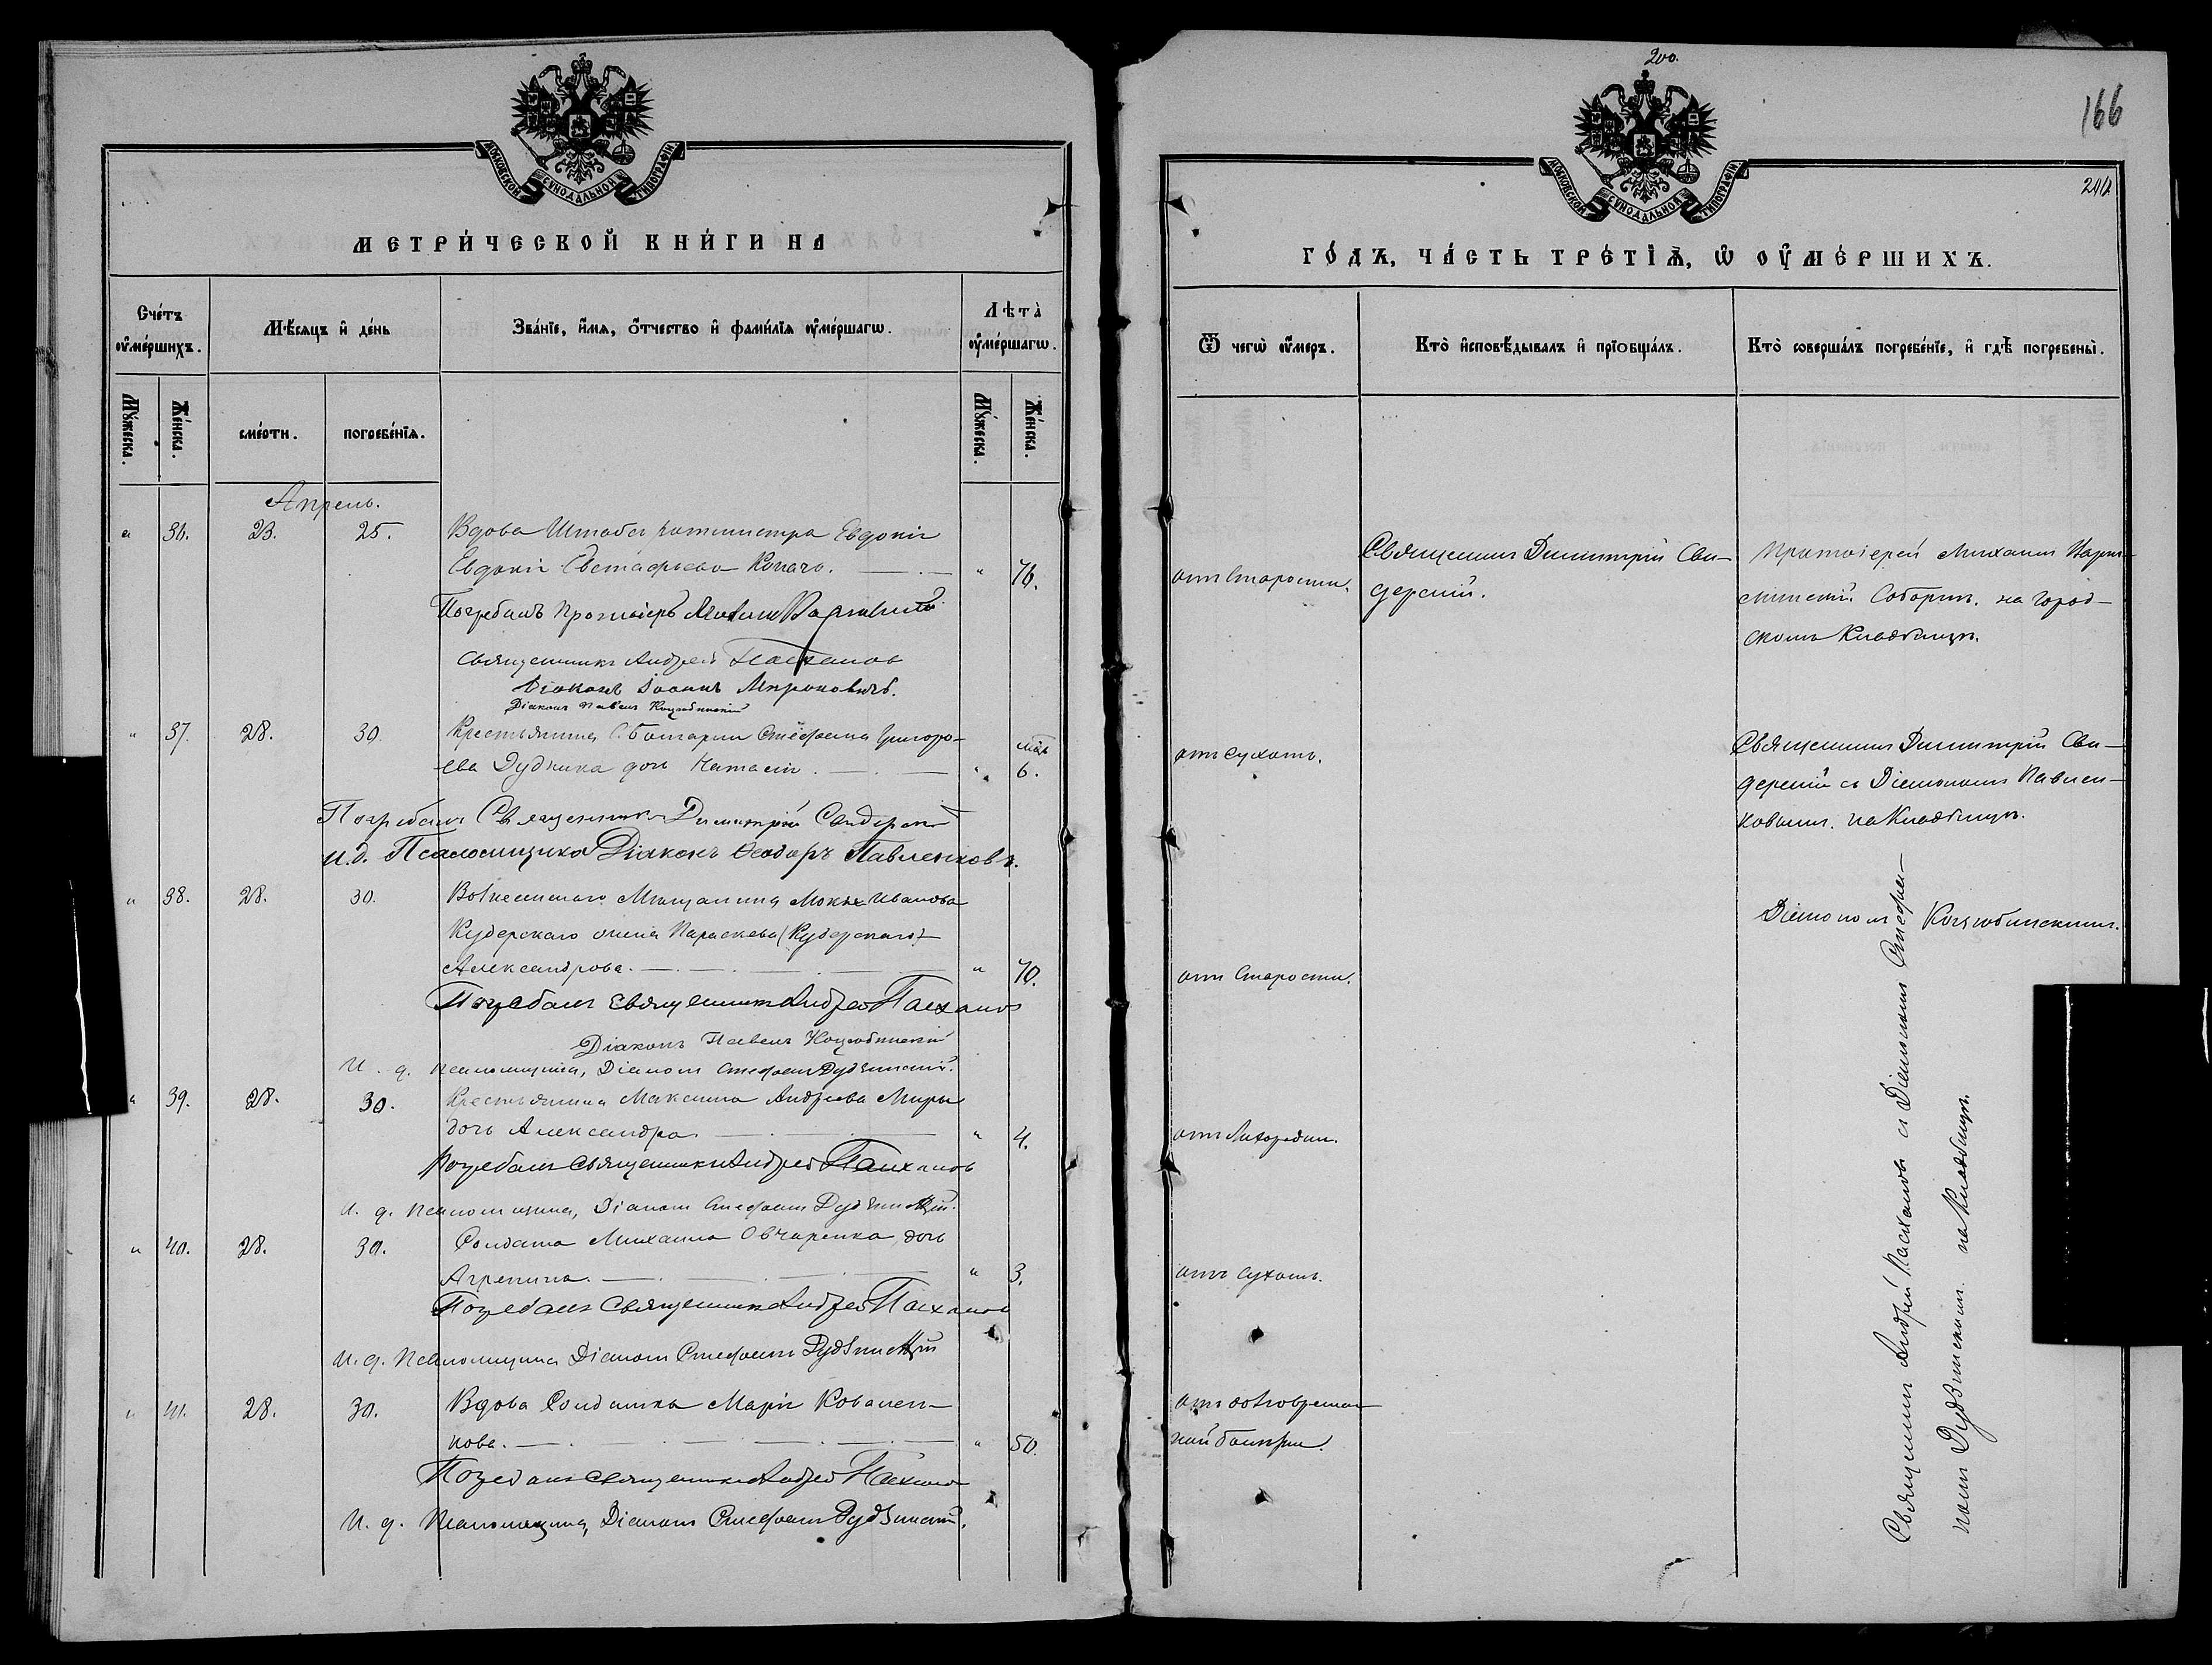 МОСКОВСКОЙ СѴНОДАЛЬНОЙ ТИПОГРАФІИ
МЕТРИ́ЧЕСКОЙ КНИ́ГИ НА
Сче́тъ ᲂу҆ме́ршихъ.
Мѣ́сяцъ и҆ де́нь
Зва́нїе, и҆́мя, ѻ҆́тчество и҆ фами́лїя ᲂу҆ме́ршагѡ.
Лѣта̀ ᲂу҆ме́ршагѡ.
Мꙋ́жеска.
Же́нска.
сме́рти.
погребе́нїѧ.
Мꙋ́жеска.
Же́нска.
Апрель.
" 36. 23. 25. Вдова Штабсъ ротмистра Евдокія
Евдокія Евстафьева Копачъ. " 76.
Погребалъ Протоіерей Михаилъ
Священникъ Андрей Пасхаловъ
Діаконъ Іоаннъ Мироновичъ.
Діаконъ Павелъ Коцюбинскій
" 37. 28. 30. Крестьянина С. Болгарки Стефана Григорь-
ева Дудника дочь Наталія. " мѣс. 6.
Погребалъ Священникъ Димитрій Сидерскій
И.д. Псаломщика Діаконъ Ѳеодоръ Павленковъ.
" 38. 28. 30. Вознесенскаго Мѣщанина Мокія Иванова
Кудерскаго жена Параскева (Кудерскаго)
Александрова. " 70.
Погребалъ Священникъ Андрей Пасхаловъ
Діаконъ Павелъ Коцюбинскій
И. д. псаломщика, Діаконъ Стефанъ Дудзинскій.
" 39. 28. 30. Крестьянина Максима Андреева Миры
дочь Александра. " 4.
Погребалъ Священникъ Андрей Пасхаловъ
И. д. псаломщика, Діаконъ Стефанъ Дудзинскій.
" 40. 28. 30. Солдата Михаила Овчаренка дочь
Агрепина. " 3.
Погребалъ Священникъ Андрей Пасхаловъ
И. д. Псаломщика Діаконъ Стефанъ Дудзинскій
" 41. 28. 30. Вдова Солдатка Марія Ковален-
кова. " 50.
Погребалъ Священникъ Андрей Пасхаловъ
И. д. Псаломщика, Діаконъ Стефанъ Дудзинскій.
200.
166
МОСКОВСКОЙ СѴНОДАЛЬНОЙ ТИПОГРАФІИ
ГО́ДЪ, ЧА́СТЬ ТРЕ́ТЇѦ, Ѡ҆ ОУ҆МЕ́РШИХЪ.
Ѿ чегѡ̀ ᲂу҆́меръ.
Кто̀ и҆сповѣ́дывалъ и҆ прїѻбща́лъ.
Кто̀ соверша́лъ погребе́нїе, и҆ гдѣ̀ погребены̀.
отъ Старости.
Священникъ Димитрій Си-
дерскій.
Протоіерей Михаилъ
Соборнѣ. на Город-
скомъ Кладбищѣ.
отъ сухотъ.
Священникъ Димитрій Си-
дерскій съ Діакономъ Павлен-
ковымъ. на Кладбищѣ.
отъ Старости.
Діаконъ Коцюбинскимъ.
отъ Лихорадки.
отъ сухотъ.
отъ долговремен-
ной болѣзни.
Священникъ Андрей Пасхаловъ съ Діакономъ Стефа-
номъ Дудзинскимъ. на Кладбищѣ.